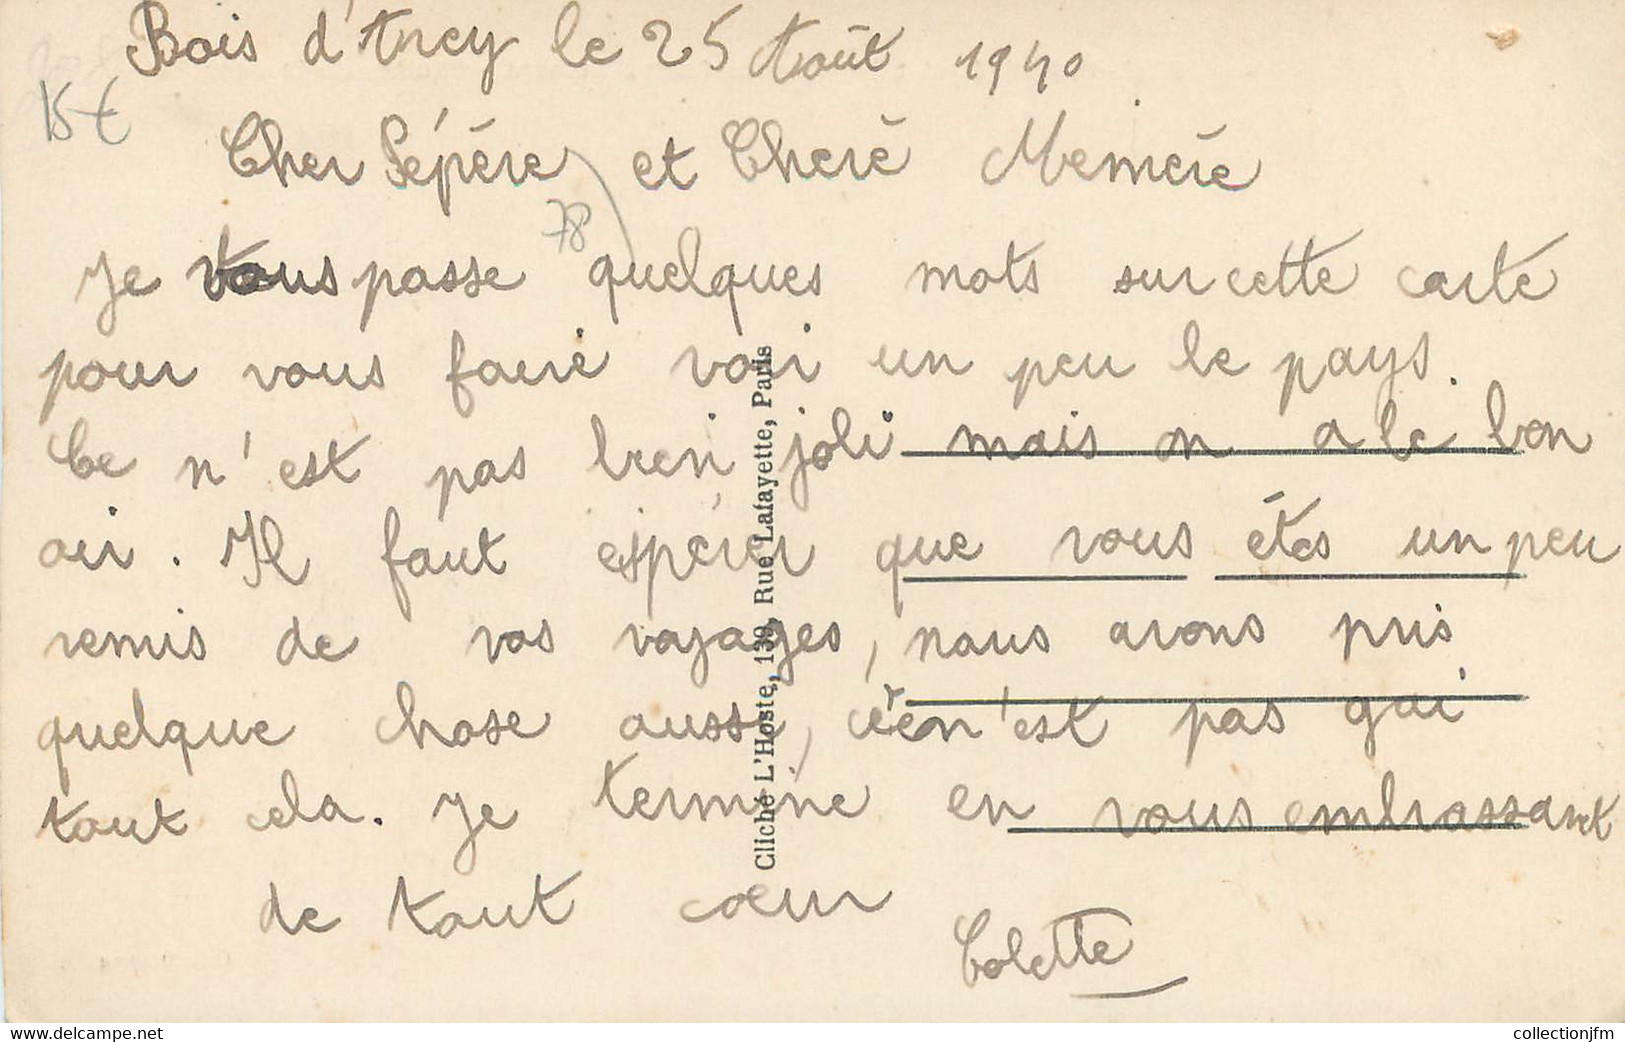 Bois d'Arcy le 25 Août 1940
15 €
Cher Pépère et Cherè Memère
78
Je vous passe quelques mots sur cette carte
pour vous faire voir un peu le pays.
Ce n'est pas bien joli mais on a le bon
air. Il faut espérer que vous étes un peu
remis de vos voyages, nous avons pris
quelque chose aussi, ce n'est pas gai
tout cela. Je termine en vous embrassant
de tout cœur
Colette
Cliché L'Hoste, 139, Rue Lafayette, Paris
www.delcampe.net
collectionjfm